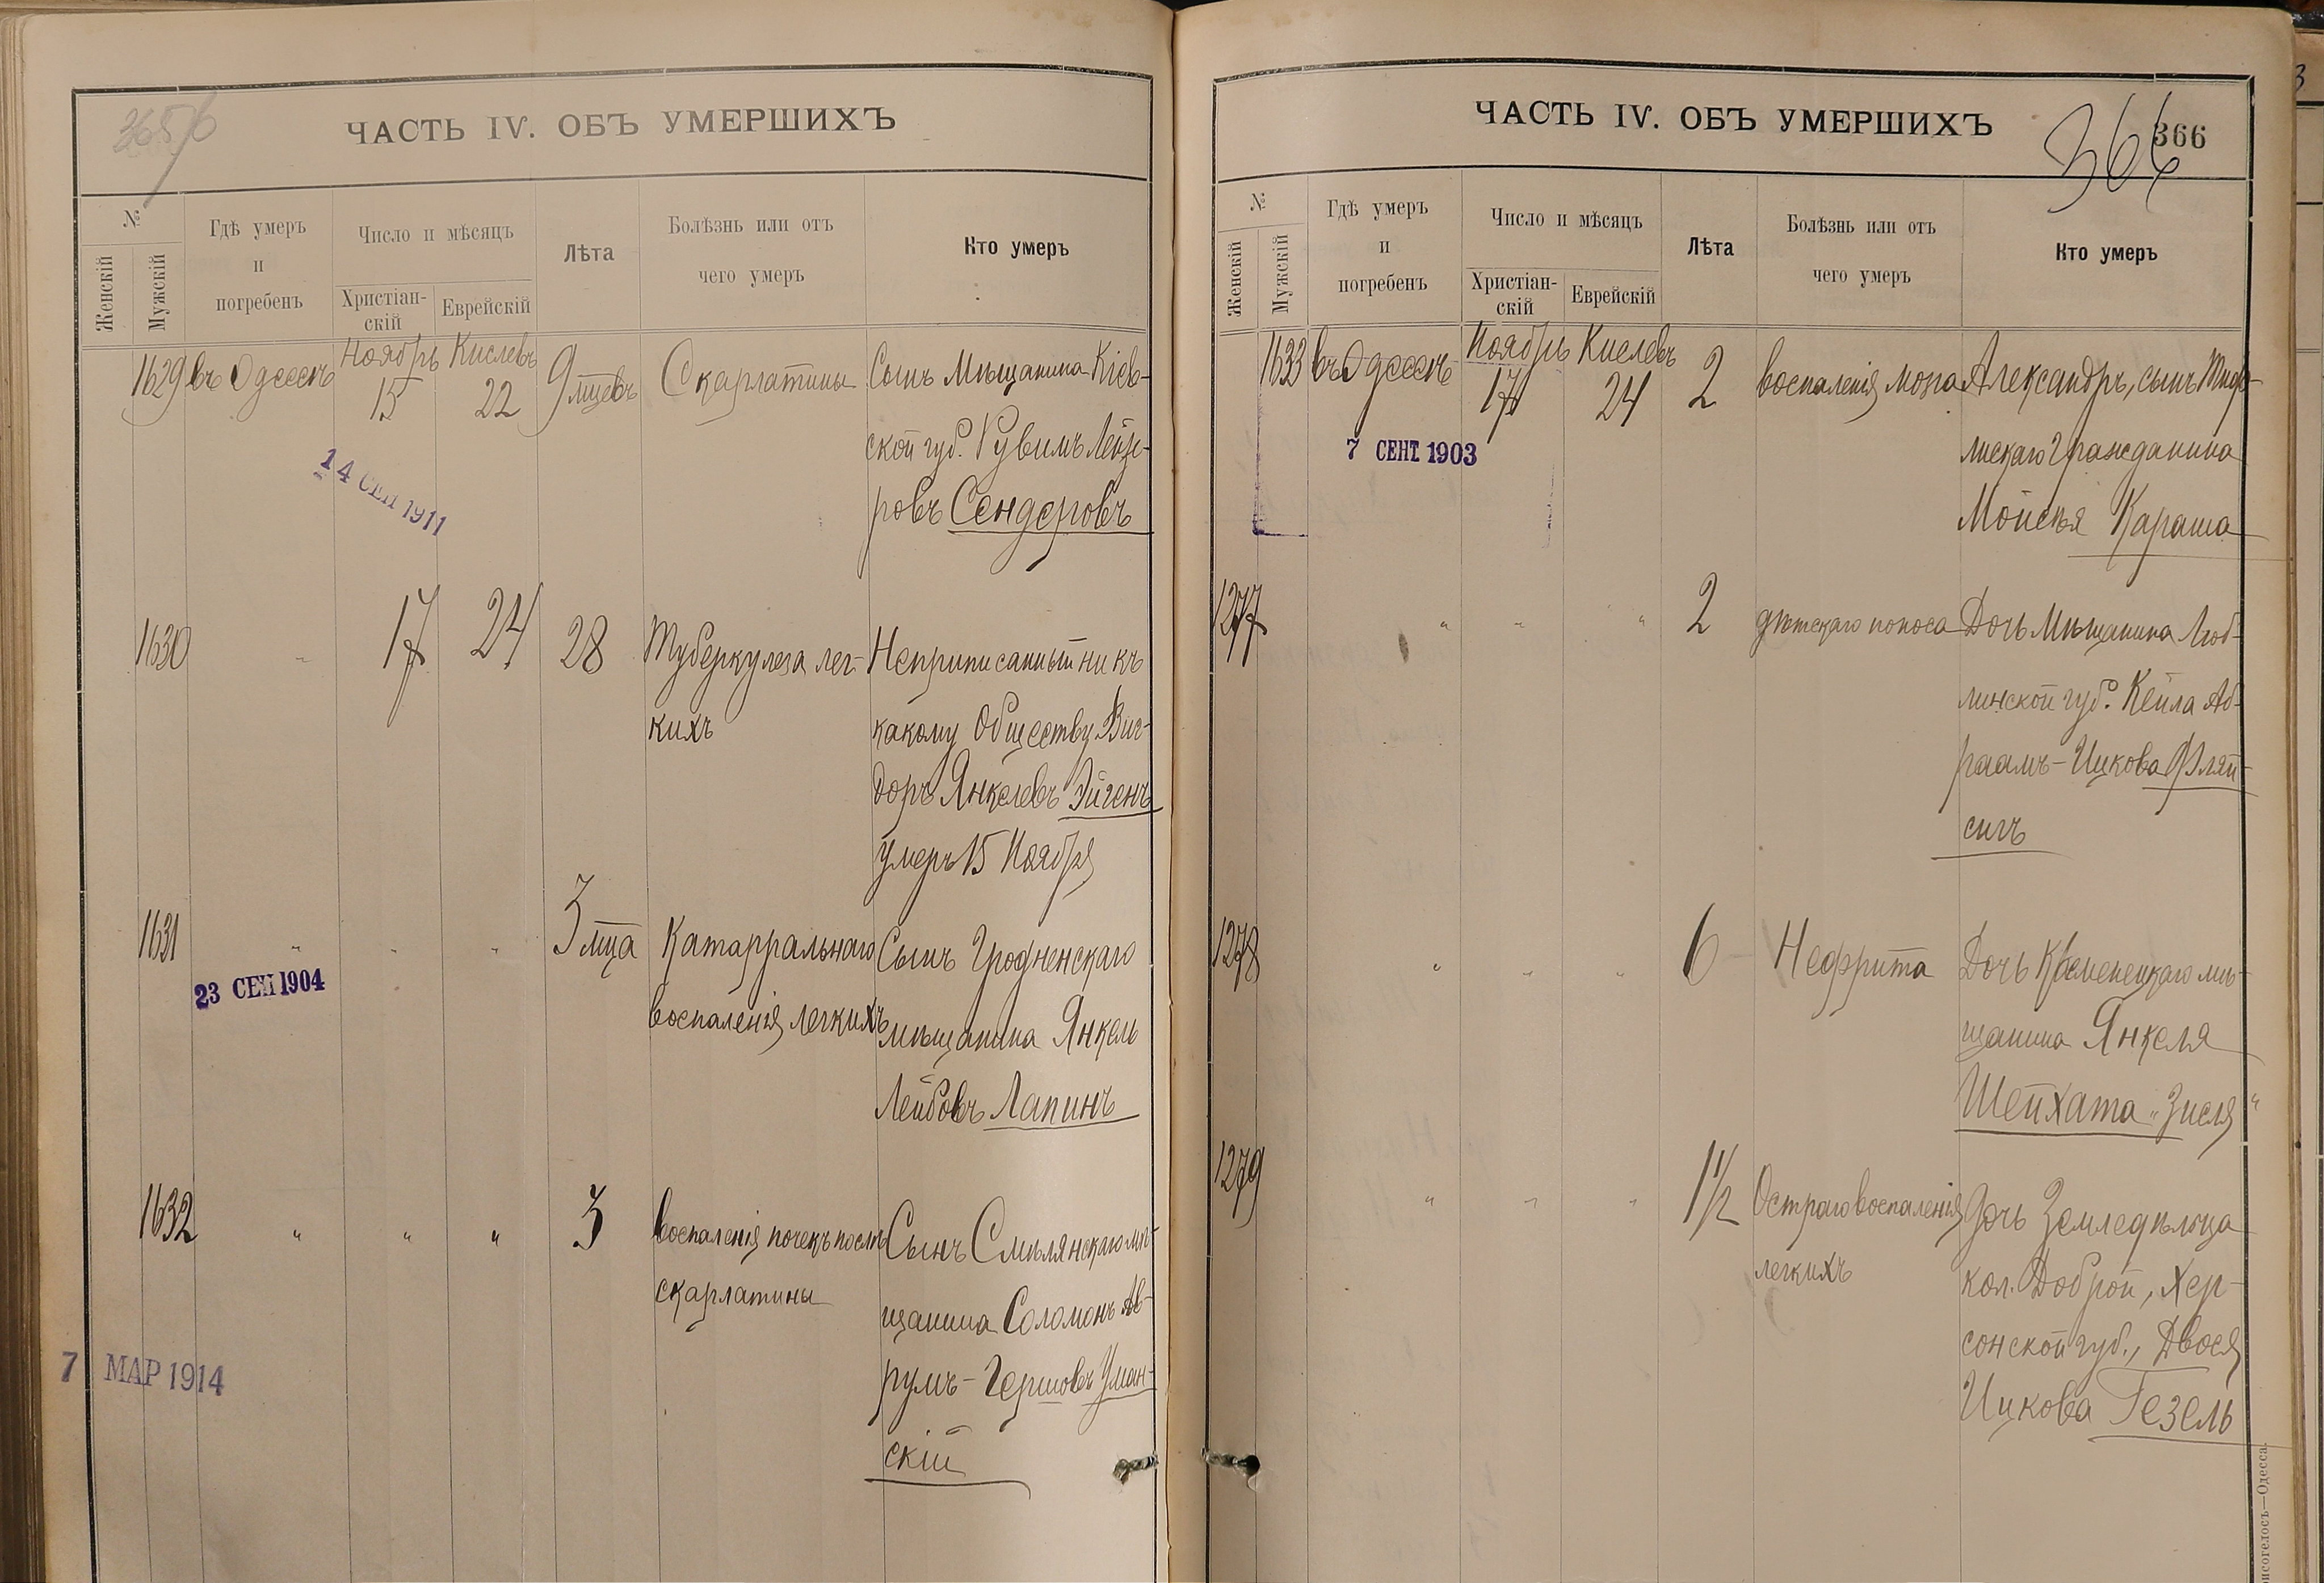 365/6
ЧАСТЬ IV. ОБЪ УМЕРШИХЪ
№
Женскій
Мужскій
Гдѣ умеръ
и
погребенъ
Число и мѣсяцъ
Христіан-
скій
Еврейскій
Лѣта
Болѣзнь или отъ
чего умеръ
Кто умеръ
1629 въ Одессѣ Ноябрь 15 Кислевъ 22 9 мцевъ Скарлатины Сынъ Мѣщанина Кіев-
ской губ. Рувимъ Лейзе-
ровъ Сендеровъ
14 СЕН 1911
1630 17 24 28 Туберкулеза лег- Неприписанный ни къ
кихъ какому Обществу Виг-
доръ Янкелевъ Эйгенъ
умеръ 15 Ноября
1631 " " " 3 мца Катарральнаго Сынъ Гродненскаго
23 СЕН 1904
воспаленія легкихъ мѣщанина Янкель
Лейбовъ Лапинъ
1632 " " " 3 воспаленія почекъ послѣ Сынъ Смѣлянскаго мѣ-
скарлатины щанина Соломонъ Ав-
румъ-Гершовъ Уман-
скій
7 МАР 1914
ЧАСТЬ IV. ОБЪ УМЕРШИХЪ
366
366
№
Женскій
Мужскій
Гдѣ умеръ
и
погребенъ
Число и мѣсяцъ
Христіан-
скій
Еврейскій
Лѣта
Болѣзнь или отъ
чего умеръ
Кто умеръ
1633 въ Одессѣ Ноябрь 17 Кислевъ 24 2 воспаленія мозга Александръ, сынъ Тиф-
лискаго Гражданина
Мойсея Караша
7 СЕНТ. 1903
1277 " " " 2 дѣтскаго поноса Дочь Мѣщанина Люб-
линской губ. Кейла Аб-
раамъ-Ицкова Фляй-
сигъ
1278 " " " 6 Нефрита Дочь Кременецкаго мѣ-
щанина Янкеля
Шейхата "Зися"
1279 " " " 1½ Остраго воспаленія Дочь Земледѣльца
легкихъ кол. Доброй, Хер-
сонской губ., Двося
Ицкова Гезель